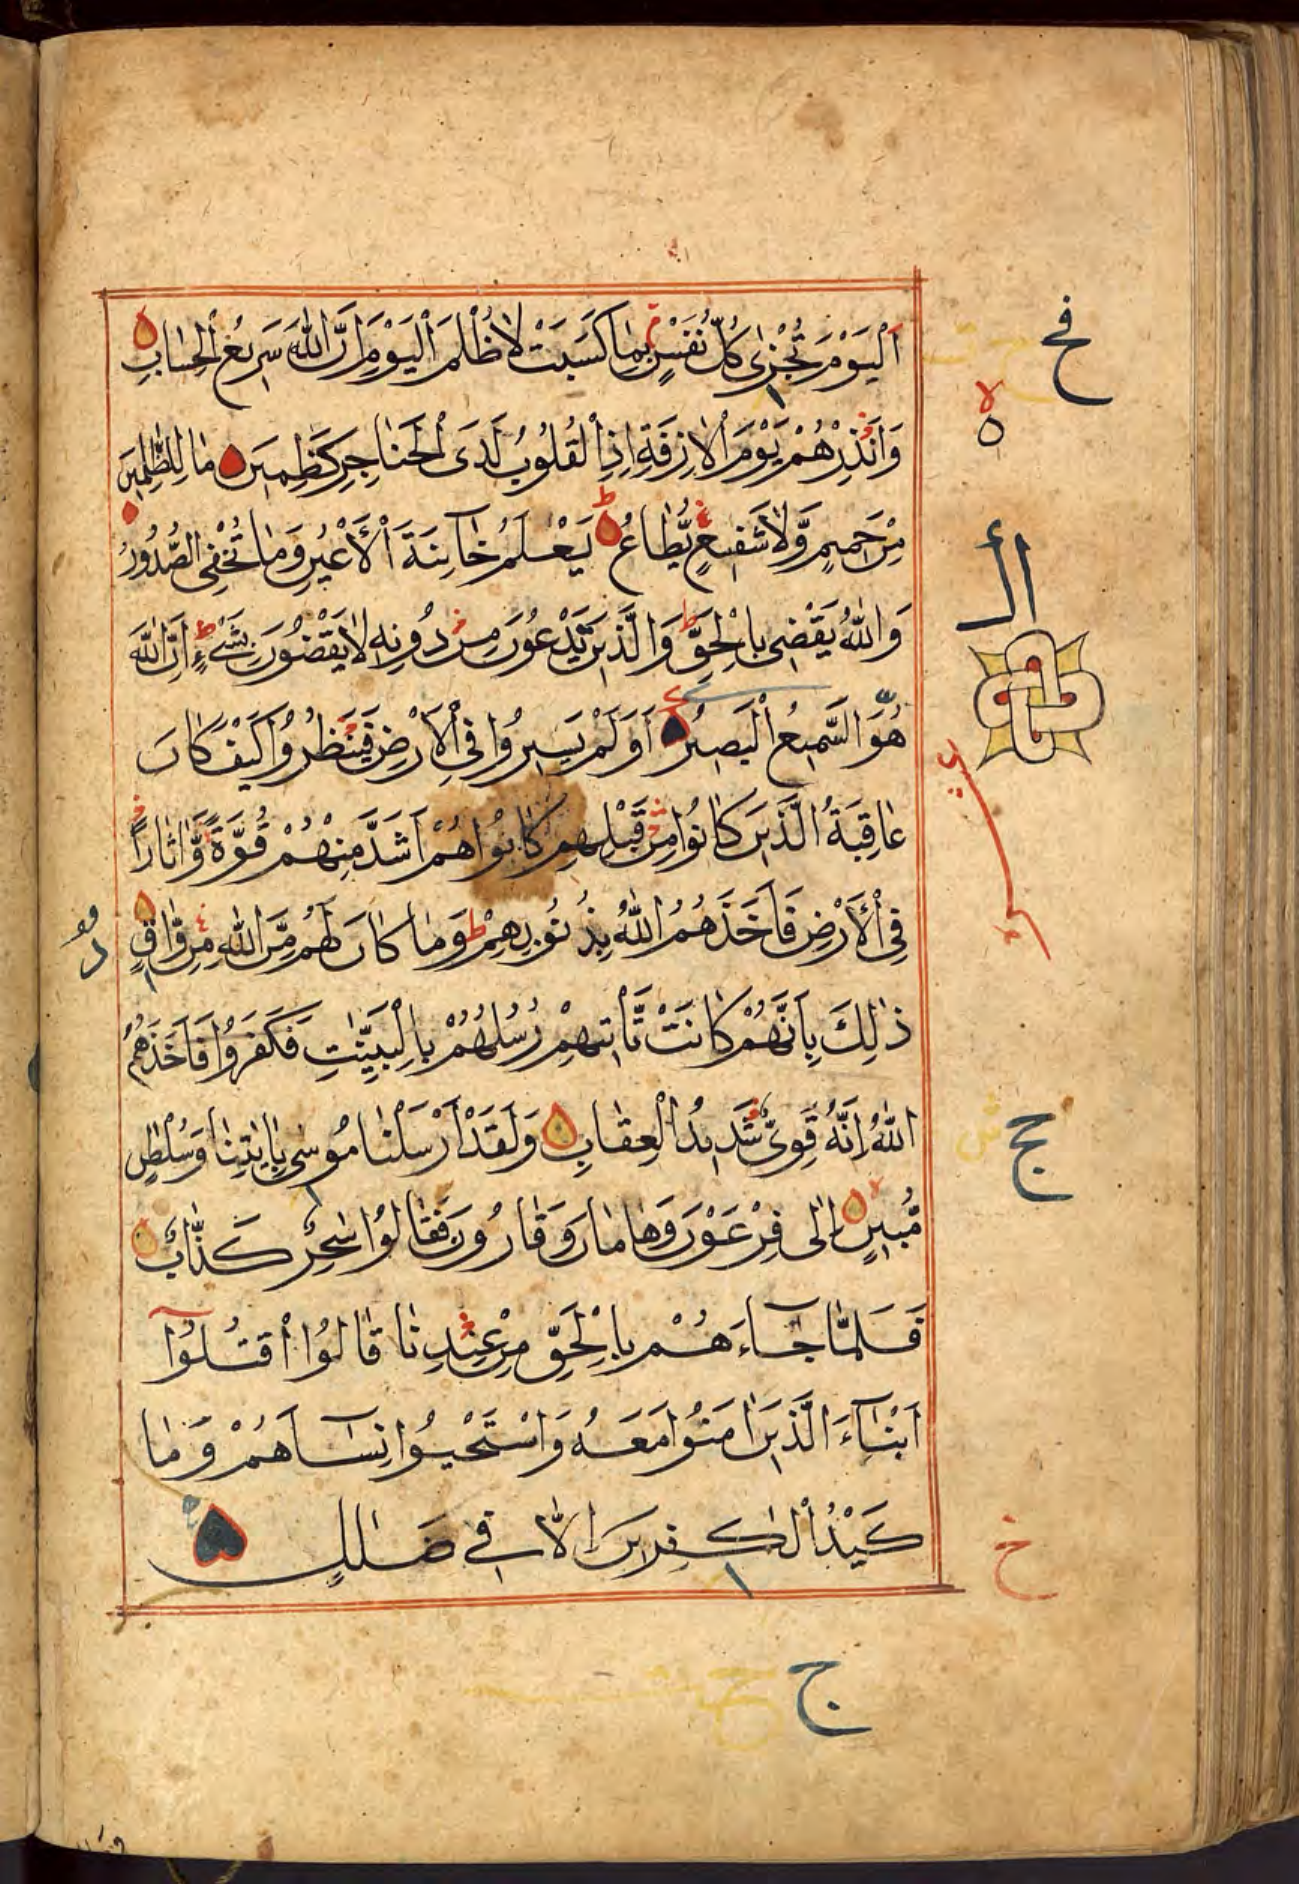 اَلْيَوْمَ تُجْزٰى كُلُّ نَفْسٍ بِمٰا كَسَبَتْ لٰا ظُلْمَ الْيَوْمَ اِنَّ اللّٰهَ سَرِيعُ الْحِسٰابِ
وَاَنْذِرْهُمْ يَوْمَ الْاٰزِفَةِ اِذِ الْقُلُوبُ لَدَى الْحَنٰاجِرِ كٰظِمِينَ مٰا لِلظّٰلِمِينَ
مِنْ حَمِيمٍ وَّلٰا شَفِيعٍ يُّطٰاعُ يَعْلَمُ خٰآئِنَةَ الْاَعْيُنِ وَمٰا تُخْفِى الصُّدُورُ
وَاللّٰهُ يَقْضِى بِالْحَقِّ وَالَّذِينَ يَدْعُونَ مِنْ دُونِهِ لٰا يَقْضُونَ بِشَىْءٍ اِنَّ اللّٰهَ
هُوَ السَّمِيعُ الْبَصِيرُ اَوَلَمْ يَسِيرُوا فِى الْاَرْضِ فَيَنْظُرُوا كَيْفَ كٰانَ
عٰاقِبَةُ الَّذِينَ كٰانُوا مِنْ قَبْلِهِمْ كٰانُوا هُمْ اَشَدَّ مِنْهُمْ قُوَّةً وَّاٰثٰارًا
فِى الْاَرْضِ فَاَخَذَهُمُ اللّٰهُ بِذُنُوبِهِمْ وَمٰا كٰانَ لَهُمْ مِّنَ اللّٰهِ مِنْ وّٰاقٍ
ذٰلِكَ بِاَنَّهُمْ كٰانَتْ تَّأْتِيهِمْ رُسُلُهُمْ بِالْبَيِّنٰتِ فَكَفَرُوا فَاَخَذَهُمُ
اللّٰهُ اِنَّهُ قَوِىٌّ شَدِيدُ الْعِقٰابِ وَلَقَدْ اَرْسَلْنٰا مُوسٰى بِاٰيٰتِنٰا وَسُلْطٰنٍ
مُّبِينٍ اِلٰى فِرْعَوْنَ وَهٰامٰانَ وَقٰارُونَ فَقٰالُوا سٰحِرٌ كَذّٰابٌ
فَلَمّٰا جٰآءَهُمْ بِالْحَقِّ مِنْ عِنْدِنٰا قٰالُوا اقْتُلُوٓا
اَبْنٰآءَ الَّذِينَ اٰمَنُوا مَعَهُ وَاسْتَحْيُوا نِسٰآءَهُمْ وَمٰا
كَيْدُ الْكٰفِرِينَ اِلّٰا فِى ضَلٰلٍ
فح
ه
ال
حج
خ
ج